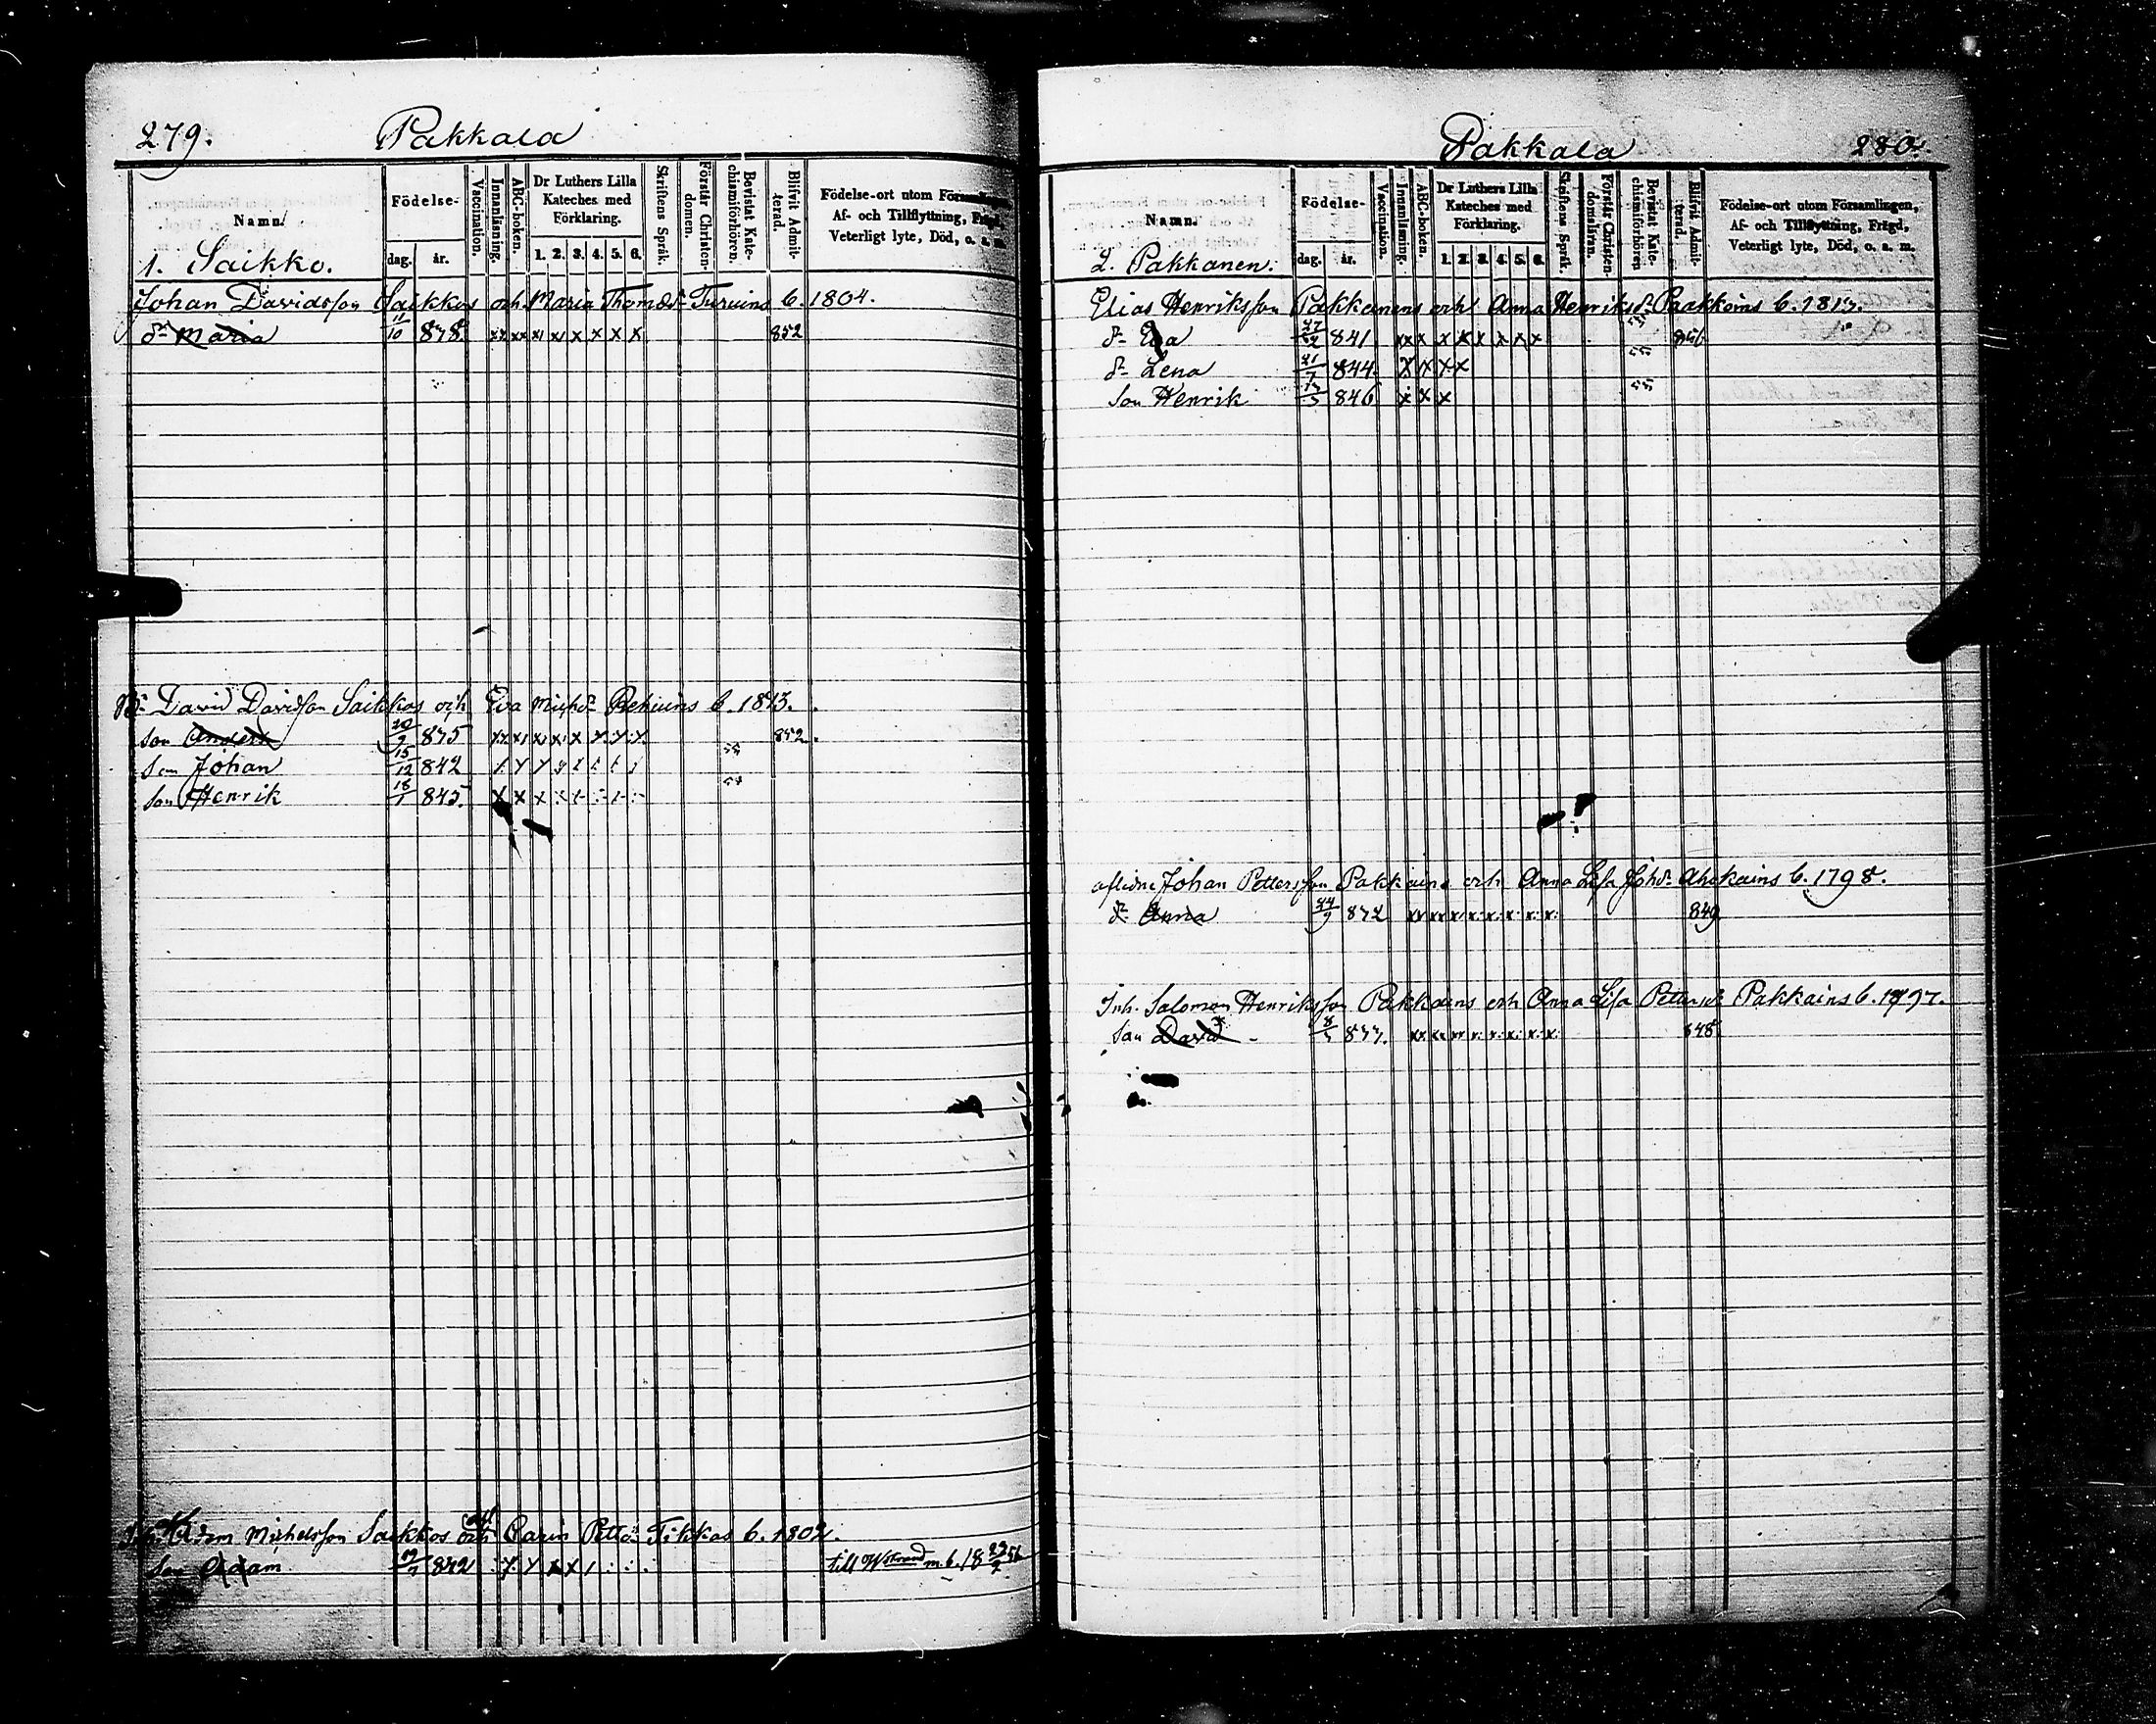 279. Pakkala
Namn.
Födelse-
dag. år.
Vaccination.
Innanläsning.
ABC-boken.
Dr Luthers Lilla
Kateches med
Förklaring.
1. 2. 3. 4. 5. 6.
Skriftens Språk.
Förstår Christen-
domen.
Bevistat Kate-
chismiförhören.
Blifvit Admit-
terad.
Födelse-ort utom Församlingen,
Af- och Tillflyttning, Frägd,
Veterligt lyte, Död, o. s. m.
1. Saikko.
Johan Davidsson Saikkos och Maria Thomæd:r b. 1804.
d:r Maria 11/10 838. 852
B:r David Davidsson Saikkos och Eva Mich:d:r b. 1813.
son Anders 835 852.
son Johan 15/12 842
son Henrik 18/1 845.
Adam Michelsson Saikkos och Carin Pett:d:r Tikkas b. 1802.
son Adam 842 till m. b. 18
Pakkala 280.
Namn.
Födelse-
dag. år.
Vaccination.
Innanläsning.
ABC-boken.
Dr Luthers Lilla
Kateches med
Förklaring.
1. 2. 3. 4. 5. 6.
Skriftens Språk.
Förstår Christen-
domsläran.
Bevistat Kate-
chismiförhören
Blifvit Admit-
terad.
Födelse-ort utom Församlingen,
Af- och Tillflyttning, Frägd,
Veterligt lyte, Död, o. s. m.
2. Pakkanen.
Elias Henriksson Pakkanens och Anna Henriksd:r b. 1813.
d:r Eva 841 856
d:r Lena 21/7 844.
son Henrik 846
aflidne Johan Pettersson Pakkains och Anna Lisa Joh:d:r Ahokains b. 1798.
d:r Anna 832 849
Inh. Salomon Henriksson Pakkains och Anna Lisa Pettersd:r Pakkains b. 1797.
son David 833. 848